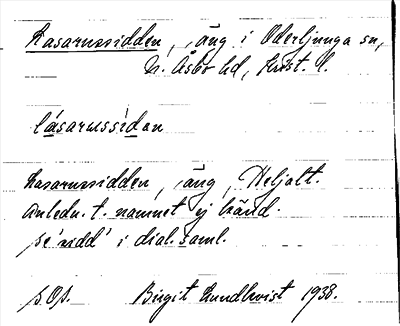 Lasarussidden, äng i Oderljunga sn,
N. Åsbo hd, Krist. l.
lásarussìdan
Lasarussidden, äng, Heljalt.
Anledn. t. namnet ej känd.
se ́sidd ́ i dial. saml.
Birgit Lundkvist 1938.